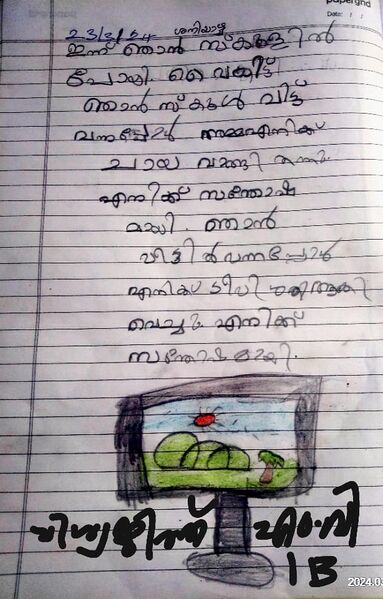 papergrid
Date: / /
23/3/24 ശനിയാഴ്ച
ഇന്ന് ഞാൻ സ്കൂളിൽ
പോയി. വൈകീട്ട്
ഞാൻ സ്കൂൾ വിട്ട്
വന്നപ്പോൾ അമ്മ എനിക്ക്
ചായ വാങ്ങി തന്നു.
എനിക്ക് സന്തോഷ
മായി. ഞാൻ
വീട്ടിൽ വന്നപ്പോൾ
എനിക്ക് ടീവി
വെച്ചു. എനിക്ക്
സന്തോഷമായി.
എം.വി
1B
2024.03